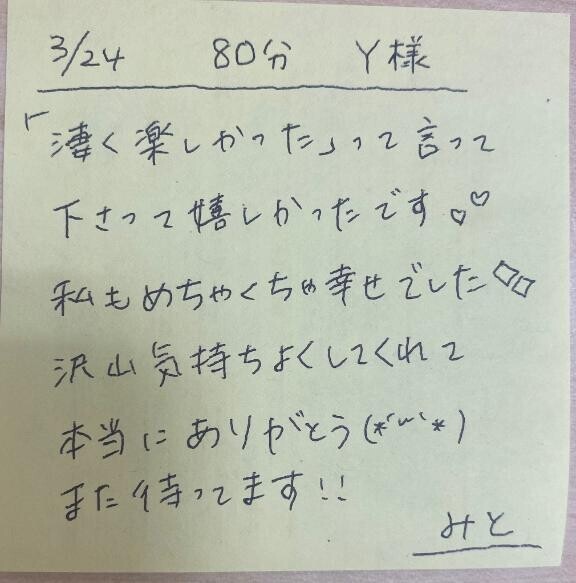 3/24 80分 Y様
「凄く楽しかった」って言って
下さって嬉しかったです♡♡
私もめちゃくちゃ幸せでした
沢山気持ちよくしてくれて
本当にありがとう(*´꒳`*)
また待ってます!!
みと